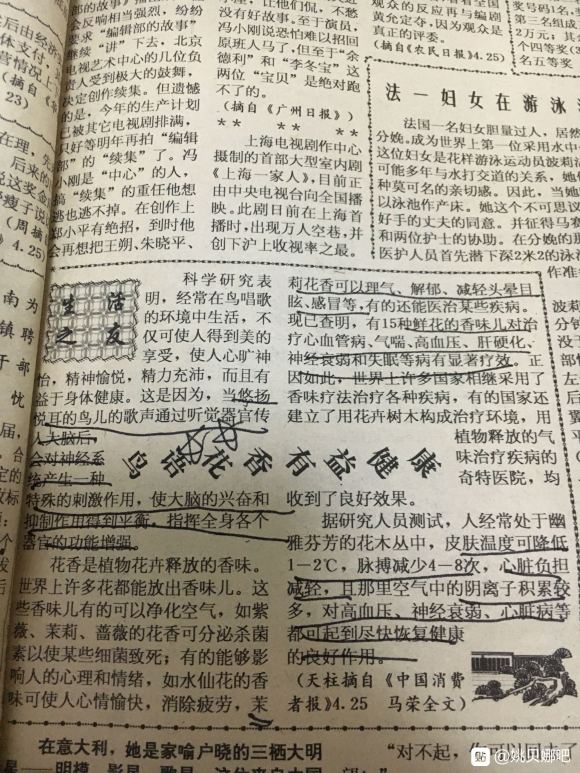 后由经济
体支付,
营情况上
(摘自《
23)
在理,先
后来的
说这奖金
等瘦子说
(周摘
4.25)
部的故事》播出后社
会反响相当强烈,纷纷
要求“编辑部的故事”
继续“讲”下去,北京
电视艺术中心的几位负
责人受到极大的鼓舞,
决定创作续集。但遗憾
的是,今年的生产计划
已被其它电视剧排满,
只好等明年再拍“编辑
部”的“续集”了。冯
小刚是“中心”的人,
搞“续集”的重任他想
逃也逃不掉。在创作上
郑小平有绝招,到时他
会再想把王朔、朱晓平、
车,让他们侃,不愁
没有好故事。至于演员,
冯小刚说恐怕难以招回
原班人马了,但至于“余
德利”和“李冬宝”这
两位“宝贝”是绝对跑
不了的。
(摘自《广州日报》)
** ** **
上海电视剧作中心
摄制的首部大型室内剧
《上海一家人》,目前正
由中央电视台向全国播
映。此剧日前在上海首
播时,出现万人空巷,并
创下沪上收视率之最。
观众的反应再与编剧
黄允定夺,因为观众
是真正的评委。
(摘自《农民日报》4.25)
奖号码1名,
第三名组成
2万元;其
个四等奖(3
名五等奖
法一妇女在游泳
法国一名妇女胆量过人,居然
分娩。成为世界上第一位采用水中
这位妇女是花样游泳运动员波莉
可能多年与水打交道的关系,她
种莫可名的亲切感。因此,当她
以泳池作产床。她这个不可思议
好手的丈夫的同意。并征得马赛
和两位护士的协助。在分娩的那
医护人员首先潜下深2米2的泳
生活之友
鸟语花香有益健康
科学研究表
明,经常在鸟唱歌
的环境中生活,不
仅可使人得到美的
享受,使人心旷神
怡,精神愉悦,精力充沛,而且有
益于身体健康。这是因为,当悠扬
悦耳的鸟儿的歌声通过听觉器官传
入大脑后,
会对神经系
统产生一种
特殊的刺激作用,使大脑的兴奋和
抑制作用得到平衡,指挥全身各个
器官的功能增强。
花香是植物花卉释放的香味。
世界上许多花都能放出香味儿。这
些香味儿有的可以净化空气,如紫
薇、茉莉、蔷薇的花香可分泌杀菌
素以使某些细菌致死;有的能够影
响人的心理和情绪,如水仙花的香
味可使人心情愉快,消除疲劳,茉
莉花香可以理气、解郁、减轻头晕目
眩、感冒等,有的还能医治某些疾病。
现已查明,有15种鲜花的香味儿对治
疗心血管病、气喘、高血压、肝硬化、神
经衰弱和失眠等病有显著疗效。正
因如此,世界上许多国家相继采用了
香味疗法治疗各种疾病,有的国家还
建立了用花卉树木构成治疗环境,用
植物释放的气
味治疗疾病的
奇特医院,均
收到了良好效果。
据研究人员测试,人经常处于幽
雅芬芳的花木丛中,皮肤温度可降低
1—2℃,脉搏减少4—8次,心脏负担
减轻,且那里空气中的阴离子积累较
多,对高血压、神经衰弱、心脏病等
都可起到尽快恢复健康
的良好作用。
(天柱摘自《中国消费
者报》4.25 马荣全文)
在意大利,她是家喻户晓的三栖大明
“对不起,
贴 @姚贝娜吧